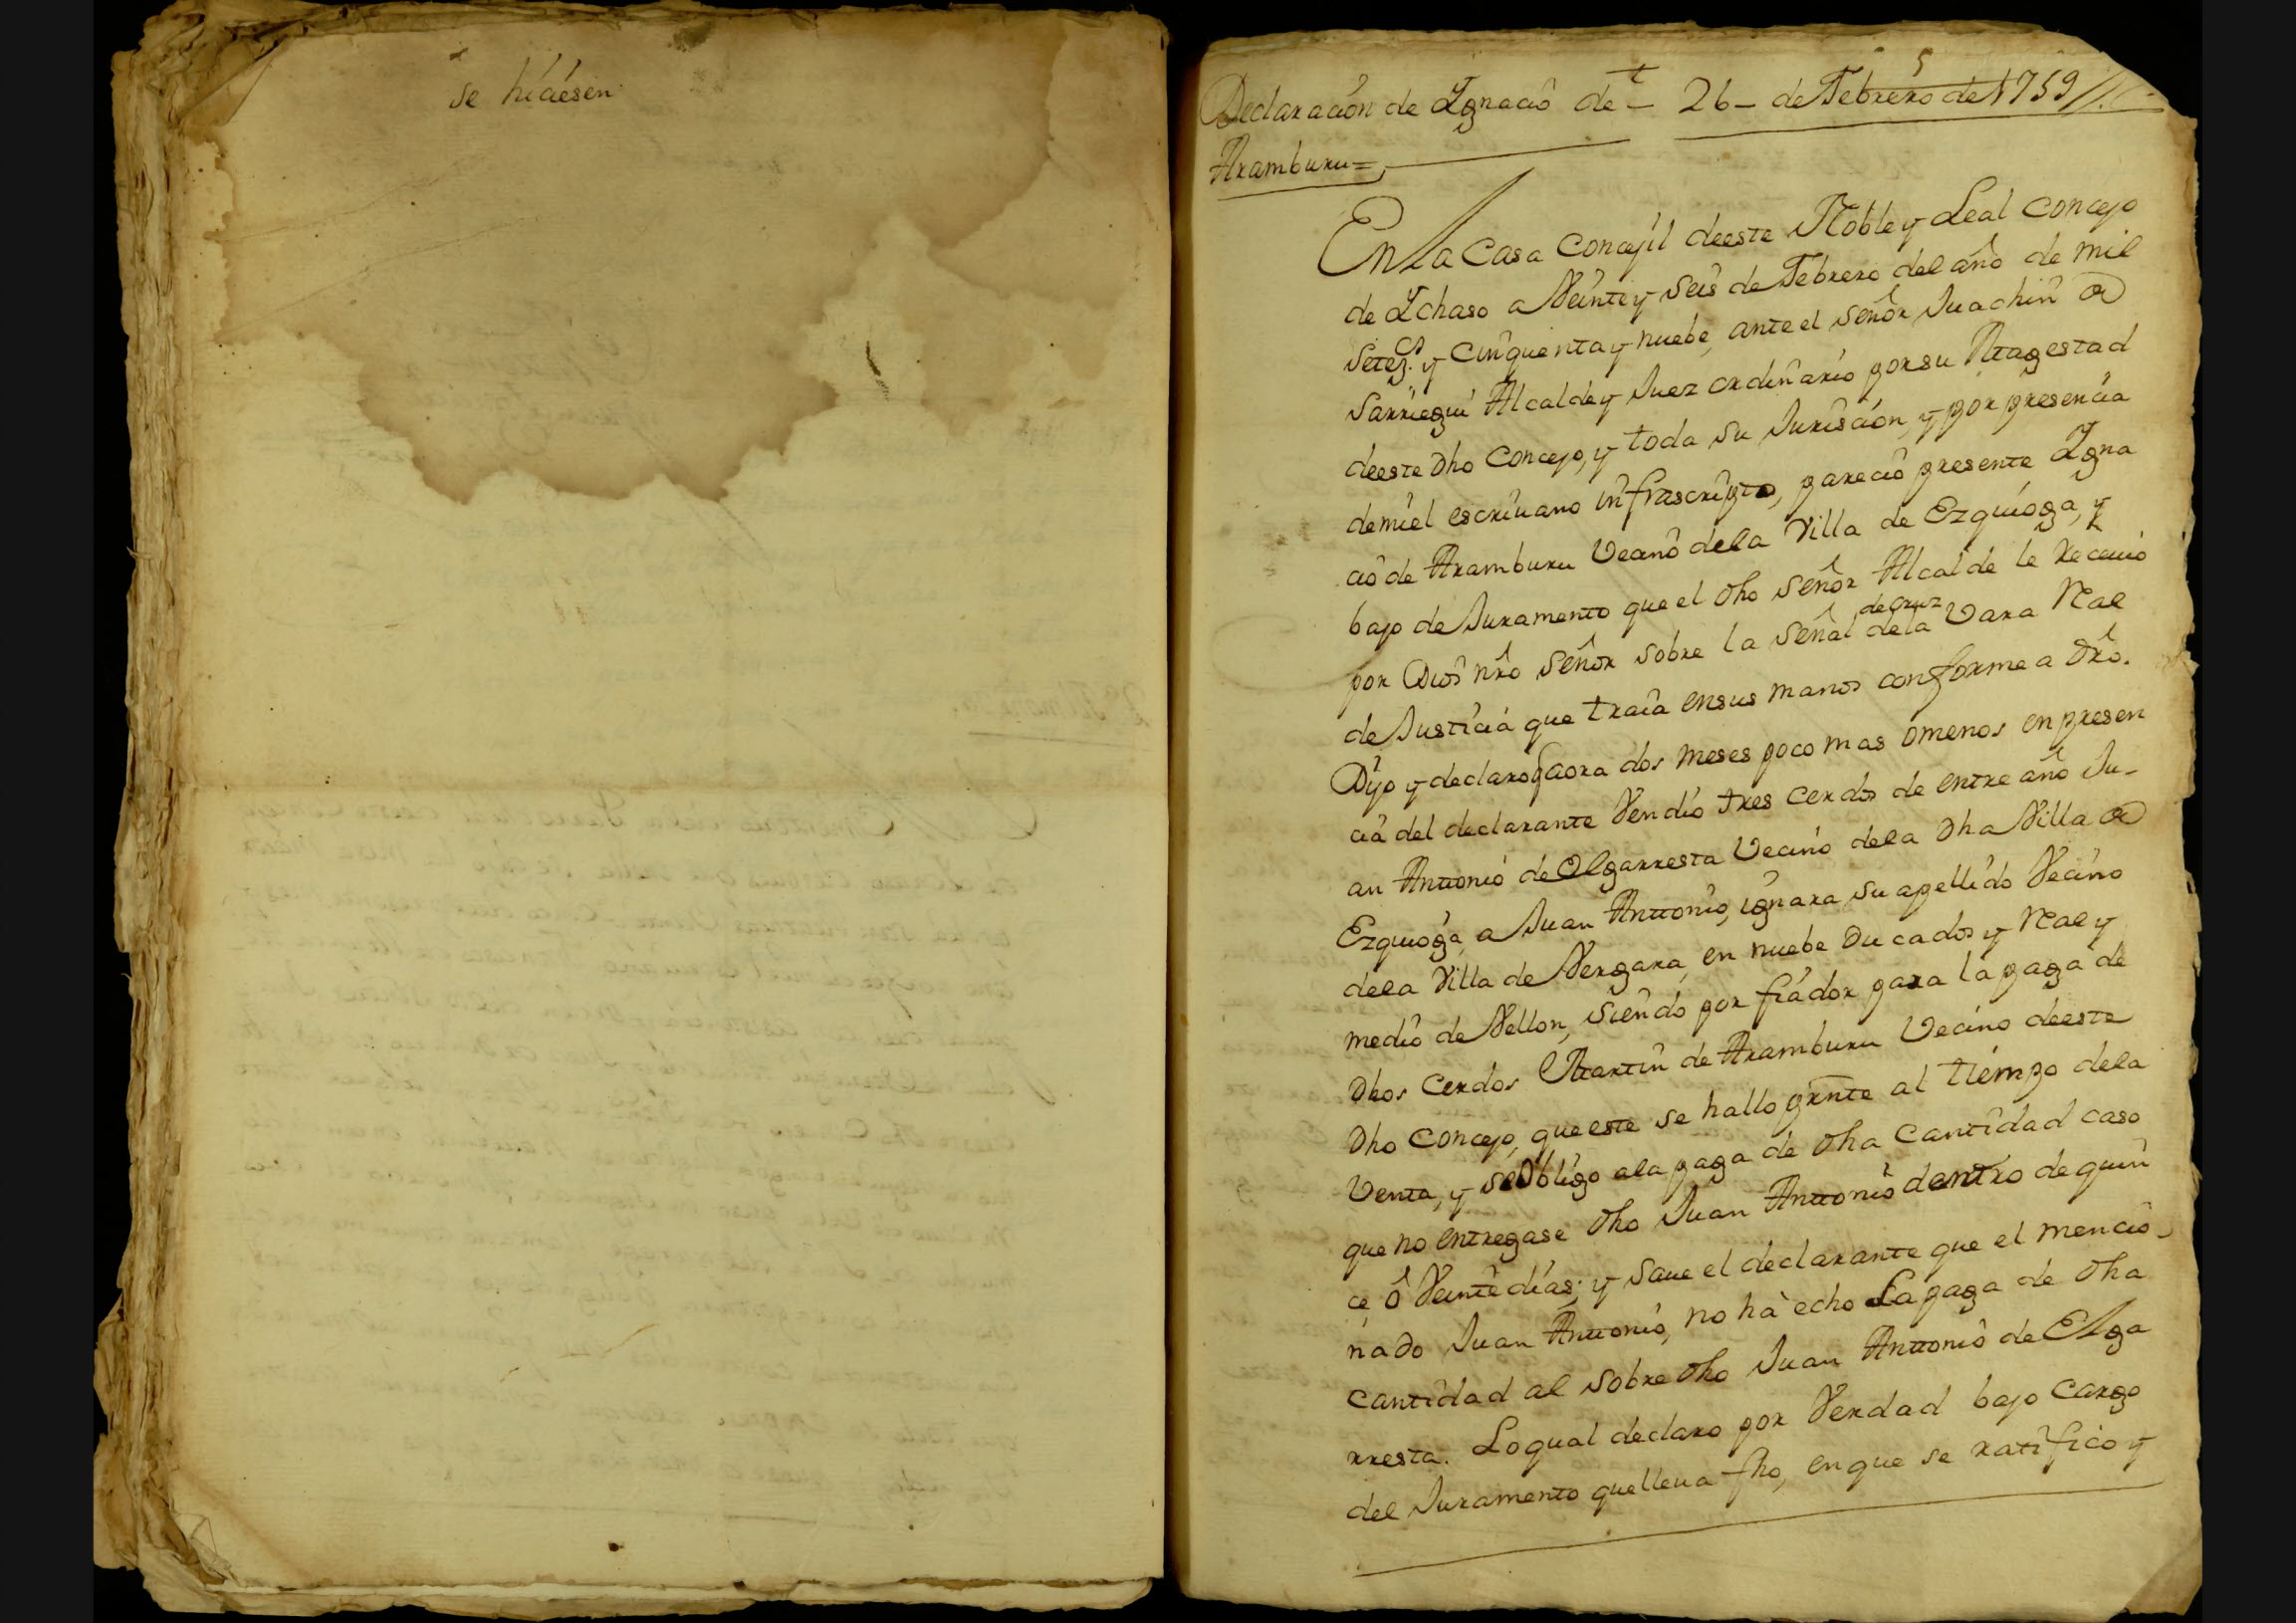 se hiciesen
5
Declaracion de Ygnacio de 26 de Febrero de 1759
Aramburu=
En la Casa Concejil deeste Noble y Leal Concejo
de Ychaso a Veinte y seis de Febrero del año de mil
setezos. y cinquenta y nuebe, ante el señor Juachin de
Sarriegui Alcalde y Juez ordinario por su Magestad
deeste dho Concejo, y toda su Jurisción, y por presencia
demi el escriuano infrascripto, parecio presente Ygna
cio de Aramburu Vecino dela Villa de Ezquioga, y
bajo de Juramento que el dho señor Alcalde le Receuio
por Dios nro señor sobre la señal de cruz dela Vara Real
de Justicia que traia ensus manos conforme a dro.
Dijo y declaro q aora dos meses poco mas omenos en presen
cia del declarante Vendio tres cerdos de entre año Ju-
an Anttonio de Elgarresta Vecino dela dha Villa de
Ezquioga, a Juan Anttonio, ignara su apellido Vecino
dela Villa de Vergara, en nuebe Ducados y Real y
medio de Vellon, siendo por fiador para la paga de
dhos Cerdos Martin de Aramburu Vecino deeste
dho Concejo, que este se hallo prnte al tiempo dela
Venta, y se Obligo ala paga de dha Cantidad caso
que no entregase dho Juan Anttonio dentro de quin
ce ô Veinte dias; y saue el declarante que el mencio-
nado Juan Anttonio, no hà echo La paga de dha
cantidad al sobre dho Juan Anttonio de Elga
rresta. Loqual declaro por Verdad bajo Cargo
del Juramento quelleua fho, enque se ratifico y